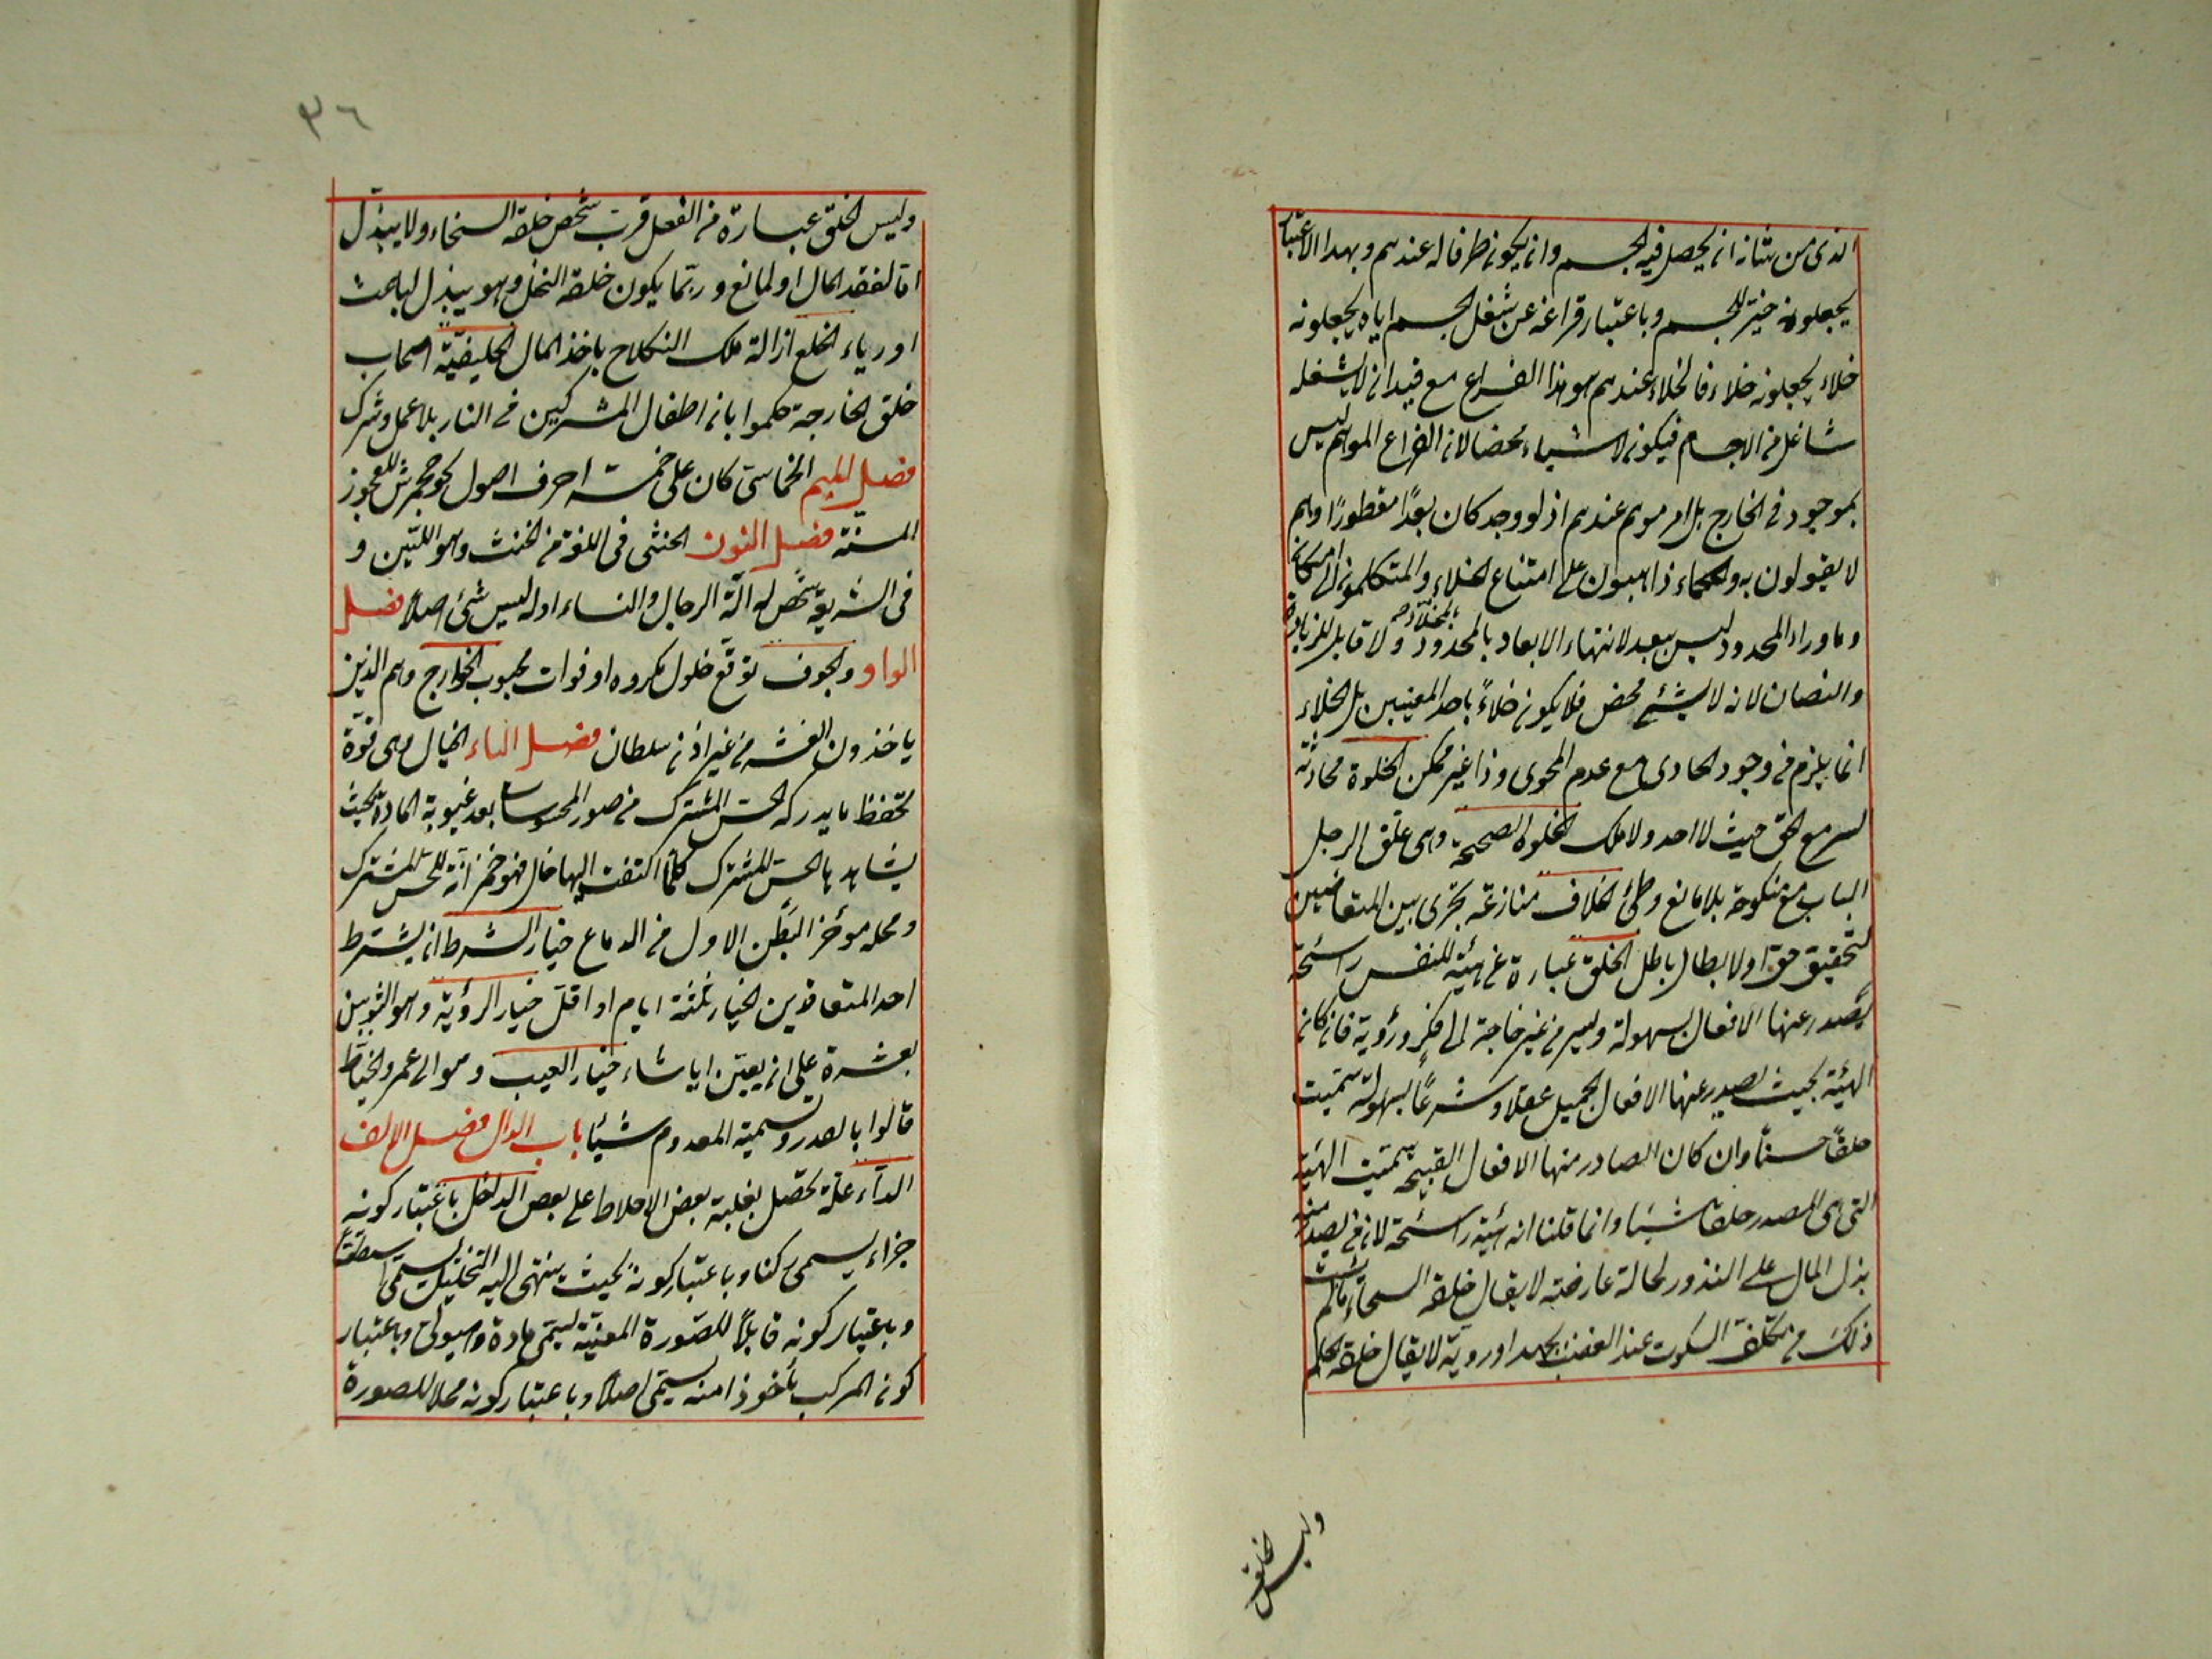 الذى من شانه ان يحصل فيه الجسم وان يكون ظرفا له عندهم وبهذا الاعتبار
يجعلونه حيزا للجسم وباعتبار فراغه عن شغل الجسم اياه يجعلونه
خلاء يجعلونه خلاء فالخلاء عندهم هو هذا الفراغ مع قيد ان لا يشغله
شاغل من الاجسام فيكون لا شياء محضا لان الفراغ الموهم ليس
بموجود فى الخارج بل امر موهم عندهم اذ لو وجد كان بعدًا مفطورًا وهم
لا يقولون به والحكماء ذاهبون على امتناع الخلاء والمتكلمون الى امكانه
وما وراء المحدود ليس ببعد لانتهاء الابعاد بالمحدود ولا قابل للزيادة
والنصان لانه لا شئ محض فلا يكون خلاءً باحد المعنيين بل الخلاء
انما يلزم فى وجود الحاوى مع عدم المحوى وذا غير ممكن الخلوة محادثة
لسر مع الحق حيث لا احد ولا ملك الخلوة الصحيحة وهى غلق الرجل
الباب مع منكوحة بلا مانع وطئ الخلاف منازعة تجرى بين المتعارضين
لتحقيق حق او لابطال باطل الخلق عبارة عن هيئة للنفس راسخة
يصدر عنها الافعال بسهولة ويسر من غير حاجة الى فكر ورؤية فان كان
الهيئة بحيث يصدر عنها الافعال الجميل عقلا وشرعًا بسهولة سميت
خلقًا حسنًا وان كان الصادر منها الافعال القبيحة سميت الهئية
التى هى المصدر خلقا سيئا وانما قلنا انه هيئة راسخة لان من يصدر منه
بذل المال على الندور لحالة عارضة لا يقال خلقه السخاء مالم يثبت
ذلك من تكلف السكوت عند الغضب بجهد او روية لا يقال خلقه الحلم
وليس الخلق
٣٦
وليس الخلق عبارة من الفعل فرب شخص خلقه السخاء ولا يبذل
اما لفقد المال او لمانع وربما يكون خلقه البخل وهو يبذل لباعث
او رياء الخلع ازالة ملك النكاح باخذ المال الخليفيّة اصحاب
خلق الخارجة حكموا بان اطفال المشركين فى النار بلا عمل وشرك
فصل الميم الخماسى كان على خمسة احرف اصول نحو جحمرش للعجوز
المسنة فصل النون الخنثى فى اللغة من الخنث وهو اللين و
فى الشريعة شخص له آلة الرجال والنساء او له ليس شئ اصلا فصل
الواو والخوف توقع حلول مكروه او فوات محبوب الخوارج وهم الذين
ياخذون العشر من غير اذن سلطان فصل الياء الخيال هى قوة
تحفظ ما يدركه الحس المشترك من صور المحسوسات بعد غيبوبة المادة بحيث
يشاهدها الحس المشترك كلما التفت اليها خال فهو خزانة للحس المشترك
ومحله مؤخر البطن الاول من الدماغ خيار الشرط ان يشترط
احد المتعاقدين الخيار ثلثة ايام او اقل خيار الرؤية وهو الثوبين
بعشرة على ان يعين ايا شاء خيار العيب وهو الى عمر والخياط
قالوا بالصدر وتسمية المعدوم شيئا باب الدال فصل الالف
الداء علة تحصل بغلبة بعض الاخلاط على بعض الداخل باعتبار كونه
جزاء يسمى ركنا وباعتبار كونه بحيث ينتهى اليه التحليل يسمى اسطقسًا
وباعتبار كونه قابلاً للصورة المعينة يسمى مادة وهيولى وباعتبار
كون المركب مأخوذا منه يسمى اصلا وباعتبار كونه محلا للصورة